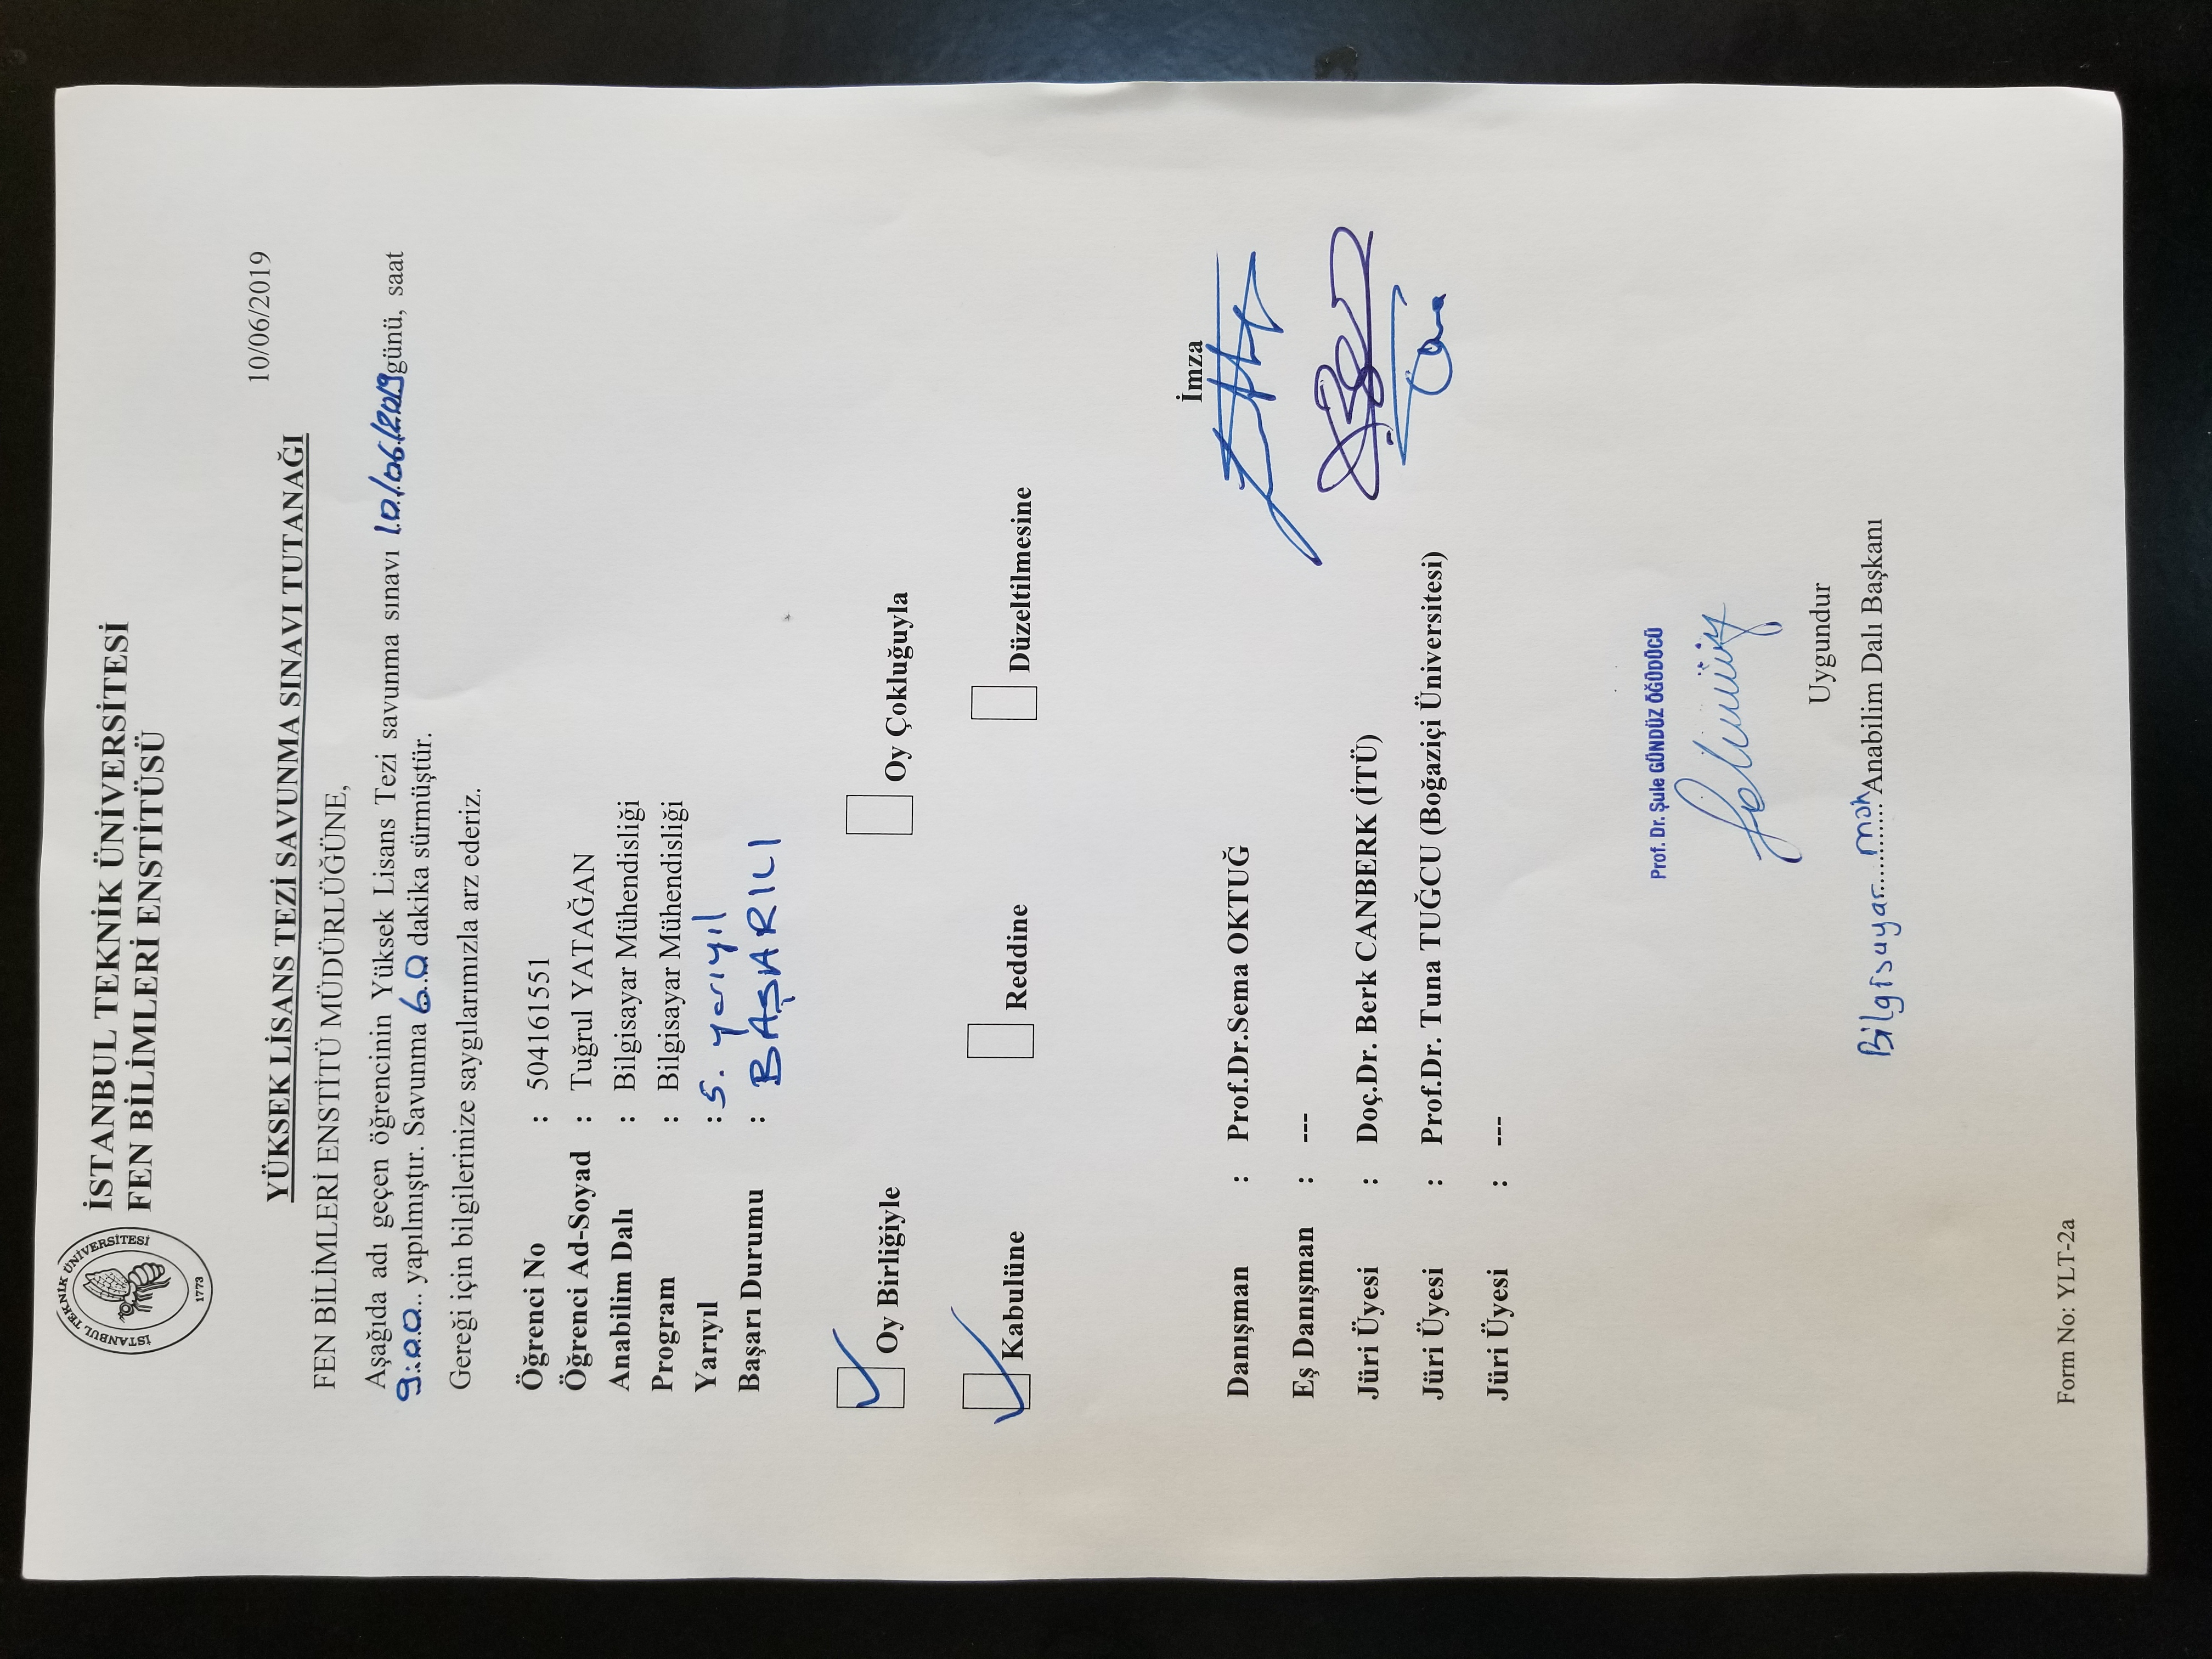 İSTANBUL TEKNİK ÜNİVERSİTESİ
1773
İSTANBUL TEKNİK ÜNİVERSİTESİ
FEN BİLİMLERİ ENSTİTÜSÜ
10/06/2019
YÜKSEK LİSANS TEZİ SAVUNMA SINAVI TUTANAĞI
FEN BİLİMLERİ ENSTİTÜ MÜDÜRLÜĞÜNE,
Aşağıda adı geçen öğrencinin Yüksek Lisans Tezi savunma sınavı 10/06/2019 günü, saat
9:00 yapılmıştır. Savunma 60 dakika sürmüştür.
Gereği için bilgilerinize saygılarımızla arz ederiz.
Öğrenci No : 504161551
Öğrenci Ad-Soyad : Tuğrul YATAĞAN
Anabilim Dalı : Bilgisayar Mühendisliği
Program : Bilgisayar Mühendisliği
Yarıyıl : 5. yarıyıl
Başarı Durumu : BAŞARILI
Oy Birliğiyle Oy Çokluğuyla
Kabulüne Reddine Düzeltilmesine
İmza
Danışman : Prof.Dr.Sema OKTUĞ
Eş Danışman : ---
Jüri Üyesi : Doç.Dr. Berk CANBERK (İTÜ)
Jüri Üyesi : Prof.Dr. Tuna TUĞCU (Boğaziçi Üniversitesi)
Jüri Üyesi : ---
Prof. Dr. Şule GÜNDÜZ ÖĞÜDÜCÜ
Uygundur
Bilgisayar müh Anabilim Dalı Başkanı
Form No: YLT-2a